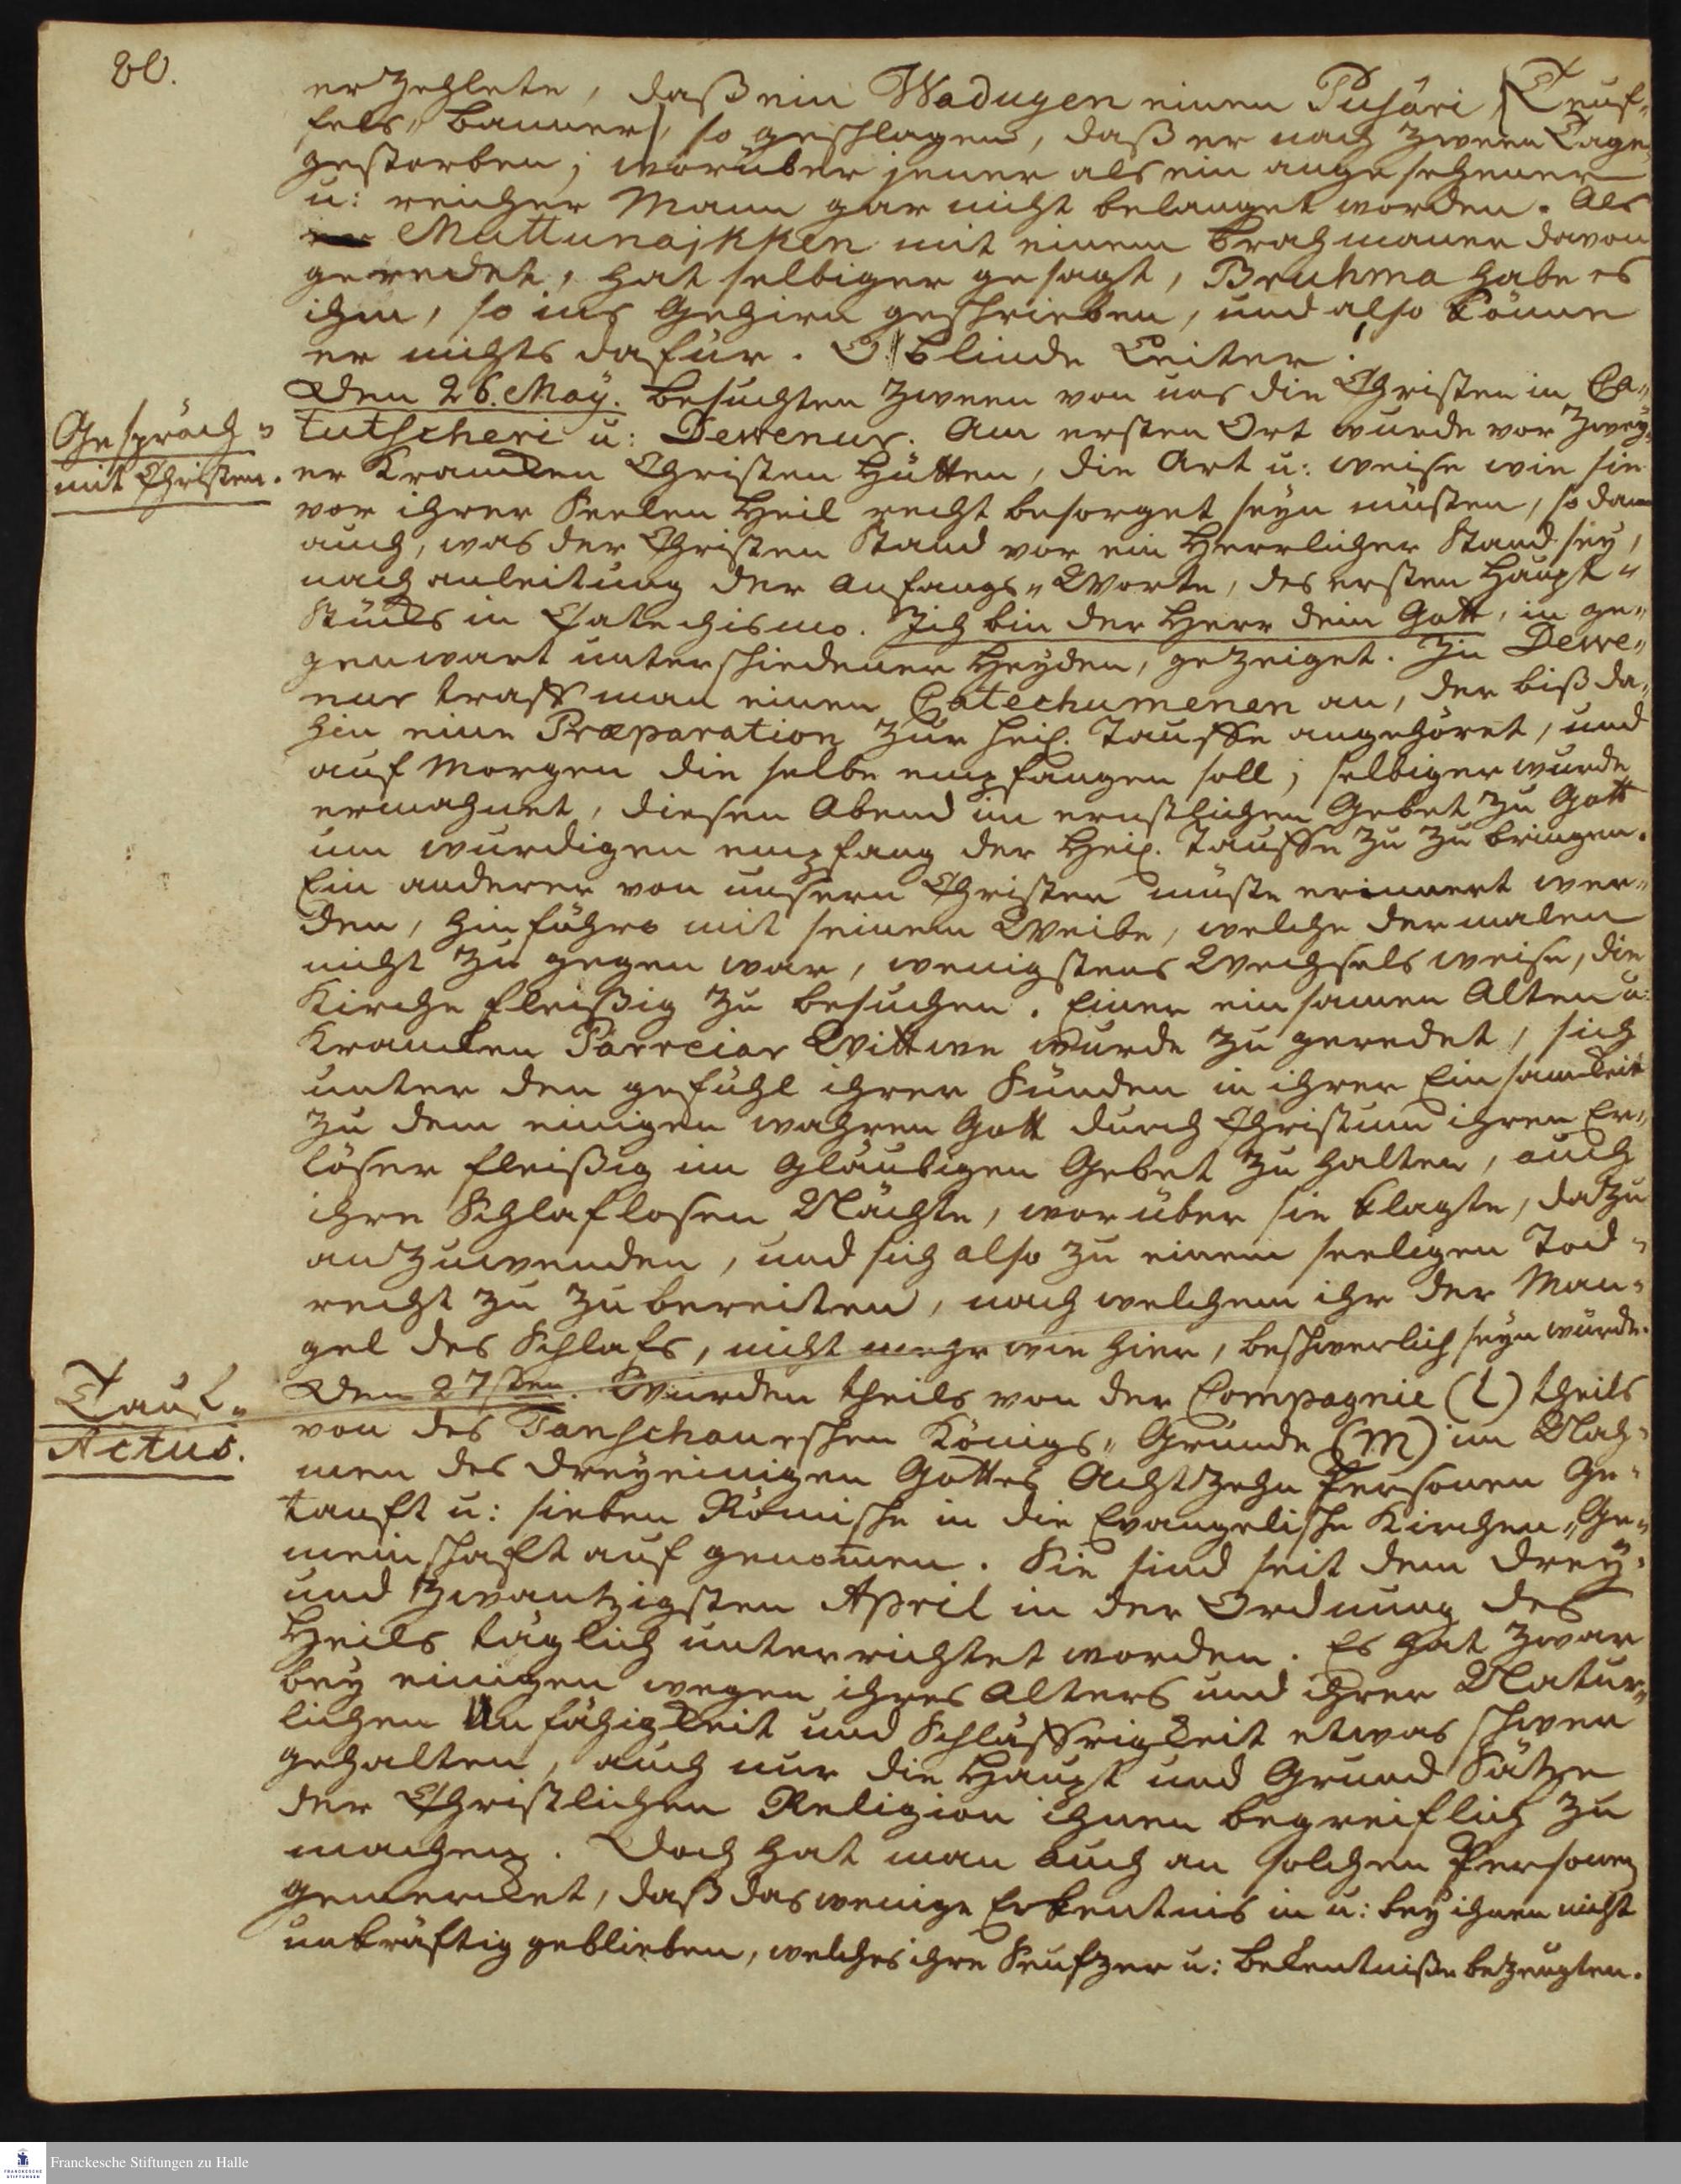 80.
erzehlete, daß ein Wadugen einen Pusári (Teuf-
fels-Banner), so geschlagen, daß er nach zween Tage
gestorben; worüber jener als ein angesehener
u: reicher Mann gar nicht belanget worden. Als
Muttunajkken mit einem Brachmaner davon
geredet, hat selbiger gesagt, Bruhma habe es
ihm, so ins Gehirn geschrieben, und also könne
er nichts dafür. O blinde Leiter!
Den 26. May. besuchten zween von uns die Christen in Ca-
Gespräch
mit Christen.
tutscheri u: Dewenur. Am ersten Ort wurde vor zwey-
er Krancken Christen Hütten, die Art u: weise wie sie
vor ihrer Seelen Heil recht besorget seyn müsten, so dann
auch, was der Christen Stand vor ein Herrlicher Stand sey,
nach anleitung der Anfangs-Worte, des ersten Haupt-
Stücks in Catechismo. Ich bin der Herr dein Gott, in ge-
genwart unterschiedener Heyden, gezeiget. In Dewe-
nur traff man einen Catechumenen an, der biß da-
hin eine Præparation zur heil. Tauffe angehöret, und
auf Morgen die selbe empfangen soll; selbiger wurde
ermahnet, diesen Abend im ernstlichen Gebet zu Gott
um würdigen empfang der Heil. Tauffe zu zu bringen.
Ein anderer von unsern Christen müste erinnert wer-
den, hinführo mit seinem Weibe, welche dermalen
nicht zu gegen war, wenigstens Wechselsweise, die
Kirche fleißig zu besuchen. Einer einsamen Alten u:
Krancken Parreiar Wittwe wurde zu geredet, sich
unter den gefühl ihrer Sünden in ihrer Einsamkeit
zu dem einigen wahren Gott durch Christum ihren Er-
löser fleißig im Gläubigen Gebet zu halten, auch
ihre Schlaflosen Nächte, worüber sie klagte, dazu
anzuwenden, und sich also zu einem seeligen Tod-
recht zu zubereiten, nach welchem ihr der Man-
gel des Schlafs, nicht mehr wie hier, beschwerlich seyn würde.
Tauf-
Actus.
Den 27sten. Wurden theils von der Compagnie (l) theils
von des Tanschaurschen Königs-Grunde (m) im Nah-
men des dreyeinigen Gottes Achtzehn Personen Ge-
tauft u: sieben Römische in die Evangelische Kirchen-Ge-
meinschaft auf genomen. Sie sind seit dem drey-
und zwantzigsten April in der Ordnung des
Heils täglich unterrichtet worden. Es hat zwar
bey einigen wegen ihres Alters und ihrer Natur-
lichen Unfähigkeit und Schläffrigkeit etwas schwer
gehalten, auch nur die Haupt und Grund Sätze
der Christlichen Religion ihnen begreiflich zu
machen. Doch hat man auch an solchen Personen
gemercket, daß das wenige Erkentnis in u: bey ihnen nicht
unkräftig geblieben, welches ihre Seufzer u: bekentniße bezeugten.
Franckesche Stiftungen zu Halle
FRANCKESCHE
STIFTUNGEN